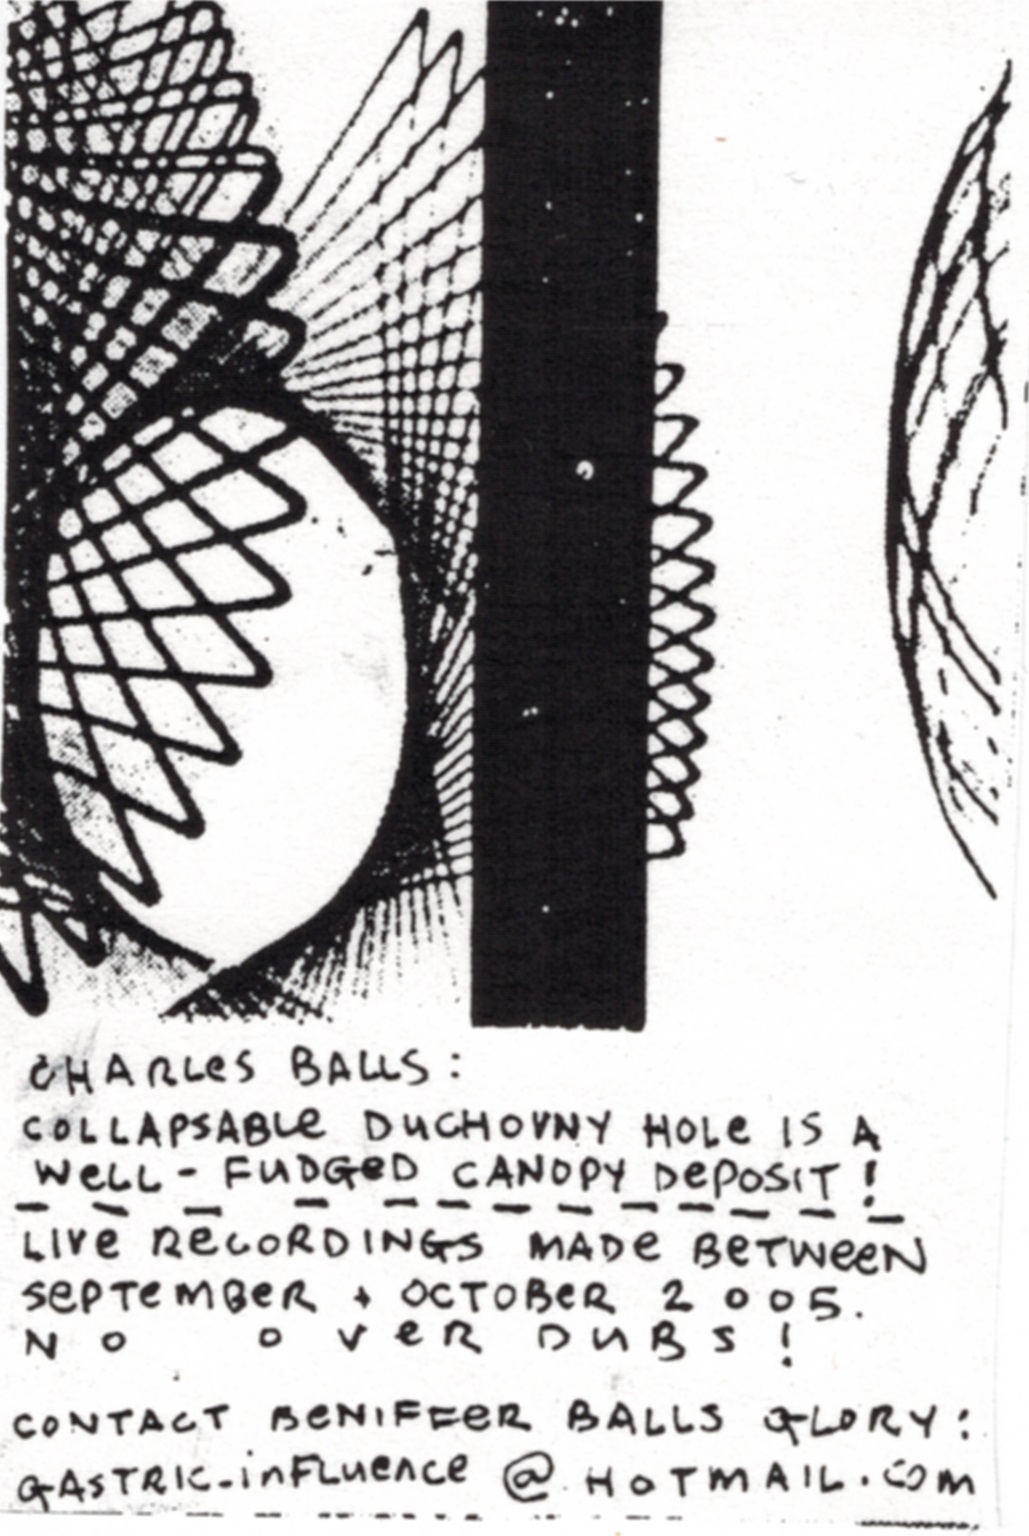 CHARLES BALLS:
COLLAPSABLE DUCHOVNY HOLE IS A
WELL-FUDGED CANOPY DEPOSIT!
LIVE RECORDINGS MADE BETWEEN
SEPTEMBER + OCTOBER 2005.
NO OVERDUBS!
CONTACT BENIFFER BALLS GLORY:
GASTRIC_INFLUENCE@HOTMAIL.COM